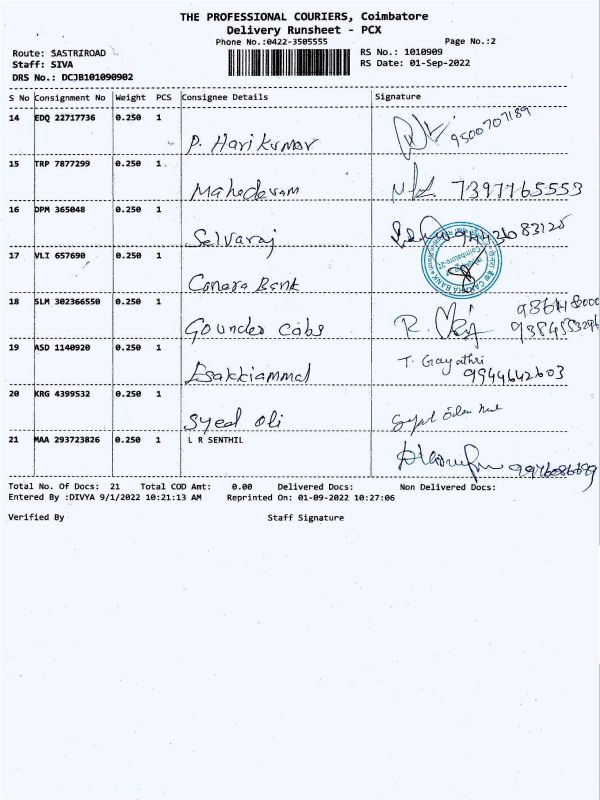 THE PROFESSIONAL COURIERS, Coimbatore
Delivery Runsheet - PCX
Phone No.:0422-3505555 Page No.:2
Route: SASTRIROAD RS No.: 1010909
Staff: SIVA RS Date: 01-Sep-2022
DRS No.: DCJB101090902
S No Consignment No Weight PCS Consignee Details Signature
14 EDQ 22717736 0.250 1
P. Harikumar 9500707189
15 TRP 7877299 0.250 1
Mahadevam 7397765553
16 DPM 365048 0.250 1
Selvaraj
17 VLI 657690 0.250 1
Canara Bank
CANARA BANK
18 SLM 302366550 0.250 1
Gounder cabs
19 ASD 1140920 0.250 1
T. Gayathri
Esakkiammal 9944642603
20 KRG 4399532 0.250 1
Syed Oli
21 MAA 293723826 0.250 1 L R SENTHIL
Total No. Of Docs: 21 Total COD Amt: 0.00 Delivered Docs: Non Delivered Docs:
Entered By :DIVYA 9/1/2022 10:21:13 AM Reprinted On: 01-09-2022 10:27:06
Verified By Staff Signature